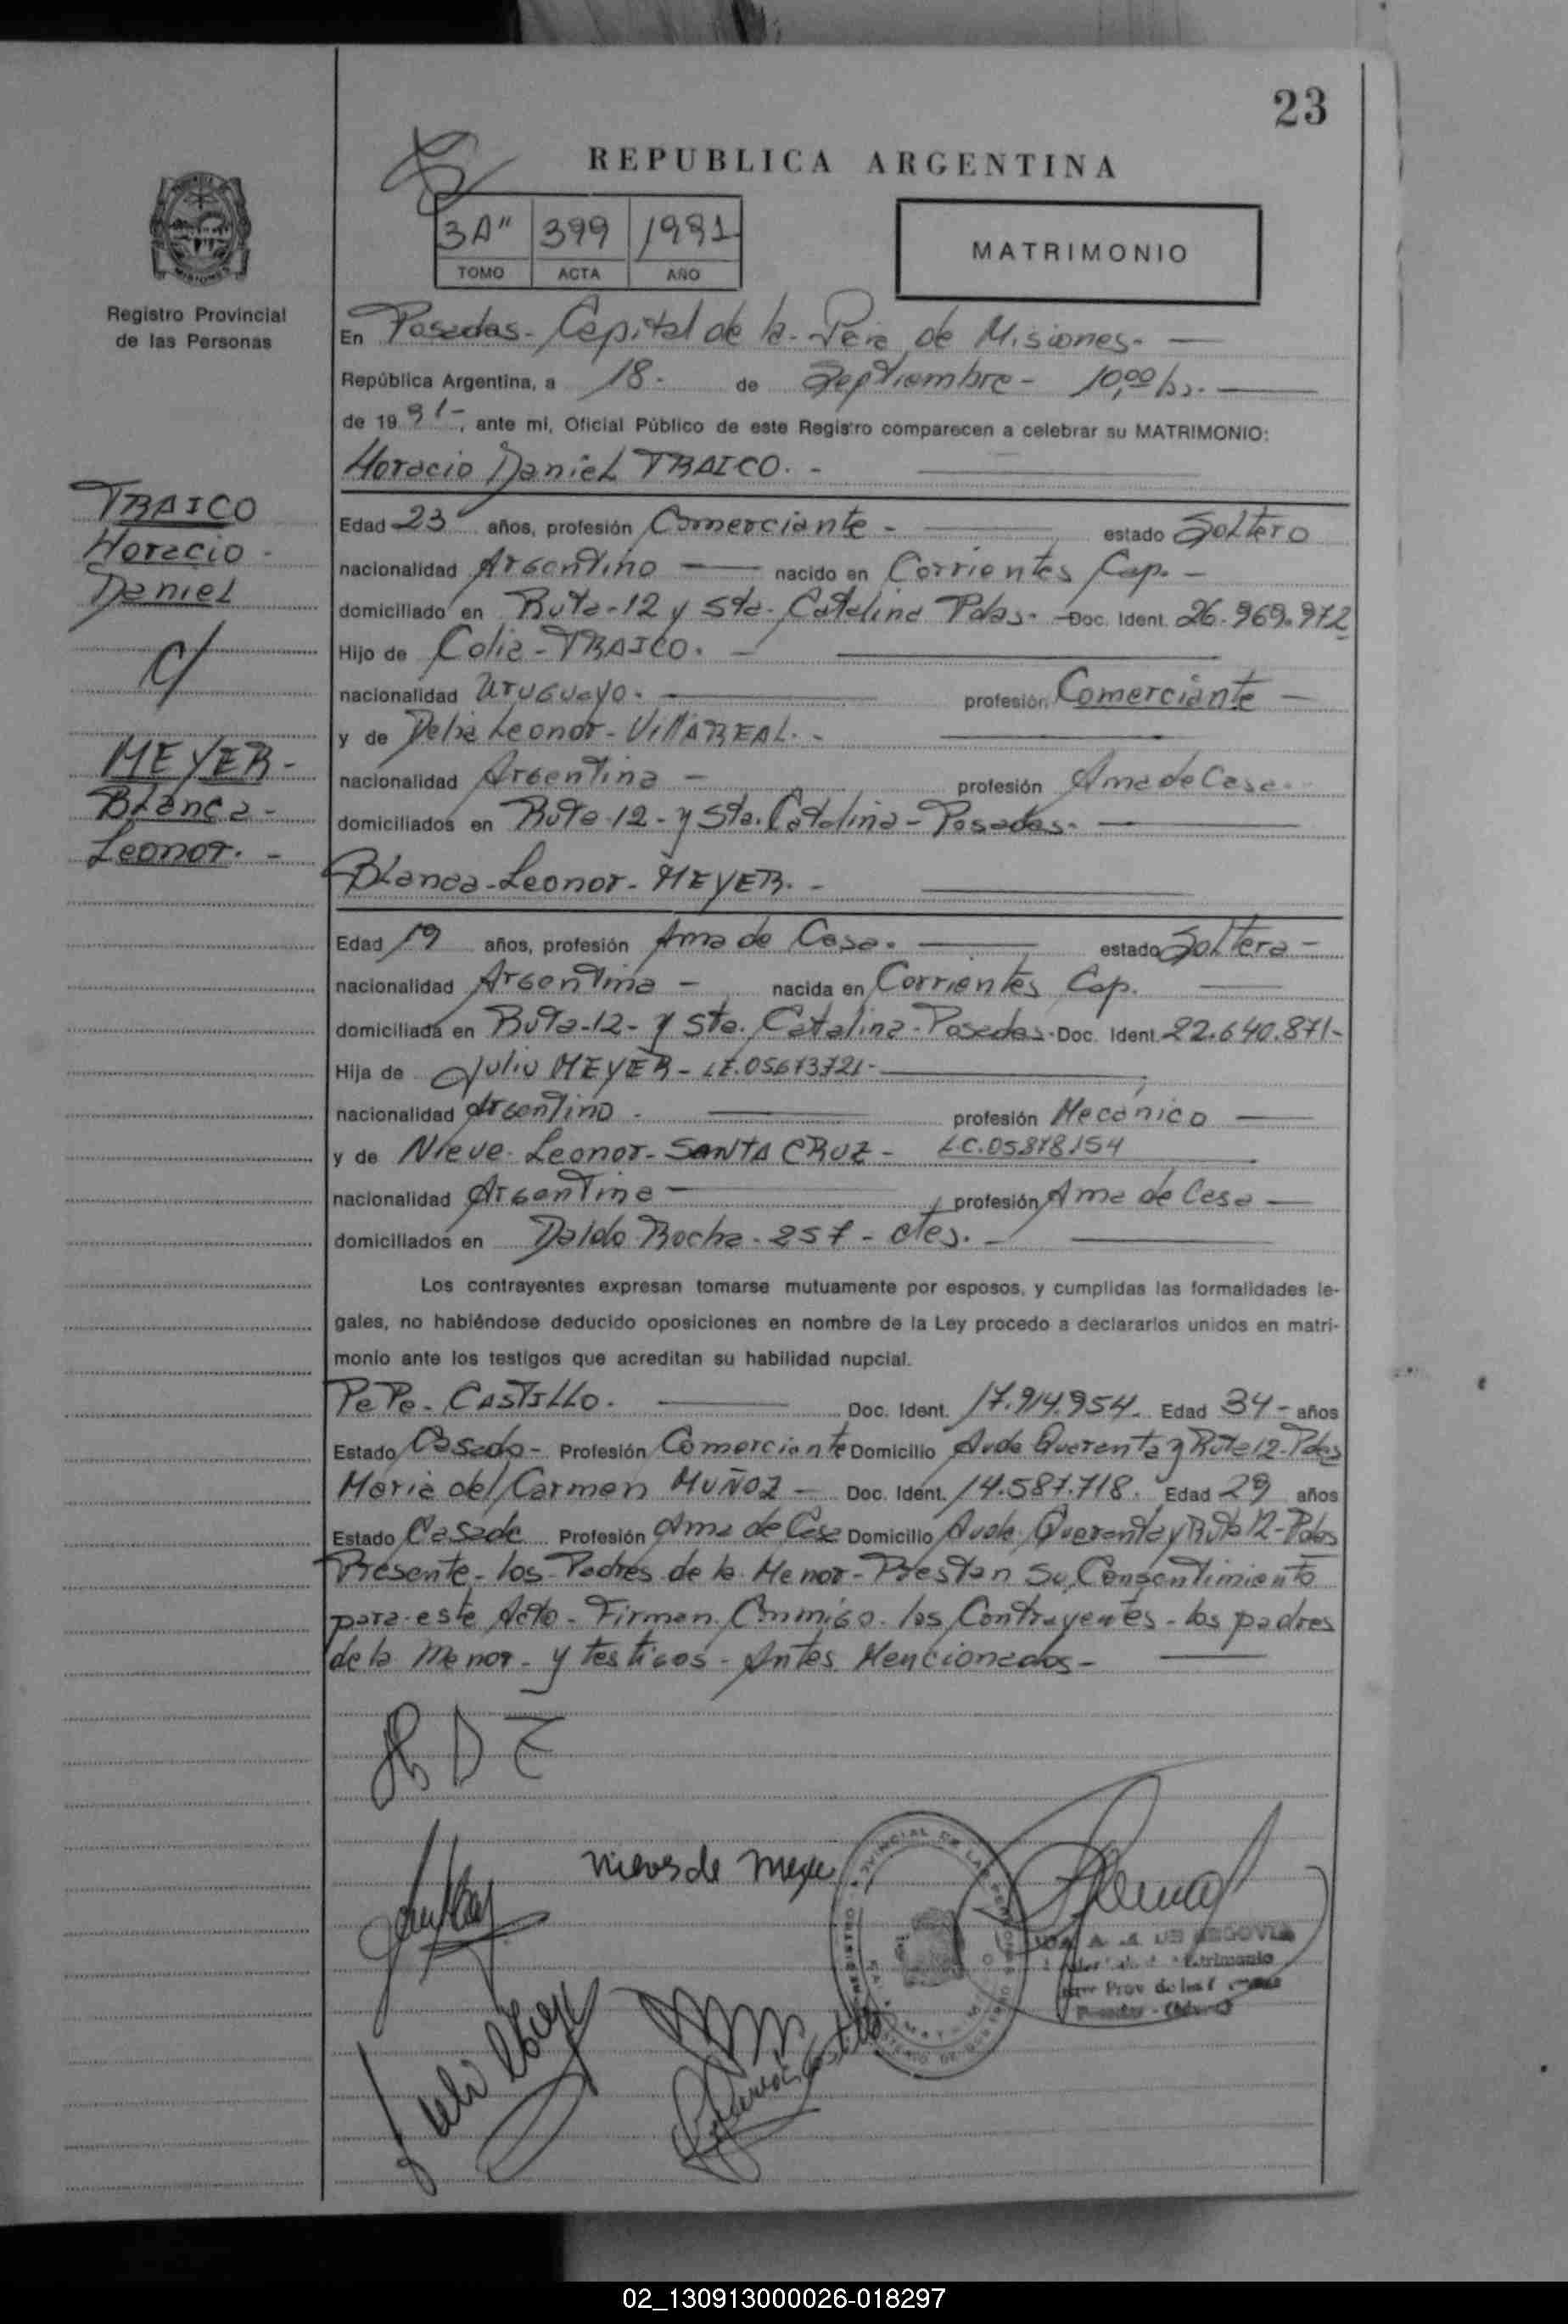 23
REPUBLICA ARGENTINA
3A" 399 1991
TOMO ACTA AÑO
MATRIMONIO
Registro Provincial
de las Personas
En Posadas - Capital de la - Pcia de Misiones. -
República Argentina, a 18 - de Septiembre - 10,00 hs. -
de 19 91-, ante mi, Oficial Público de este Registro comparecen a celebrar su MATRIMONIO:
Horacio Daniel TRAICO. -
TRAICO
Horacio -
Daniel
c/
MEYER -
Blanca -
Leonor. -
Edad 23 años, profesión Comerciante - estado Soltero
nacionalidad Argentino - nacido en Corrientes Cap. -
domiciliado en Ruta-12 y Sta. Catalina Pdas. - Doc. Ident. 26.969.972
Hijo de Colia - TRAICO. -
nacionalidad Uruguayo. - profesión Comerciante -
y de Delia Leonor - VillAREAL. -
nacionalidad Argentina - profesión Ama de Casa. -
domiciliados en Ruta-12 - y Sta. Catalina - Posadas. -
Blanca - Leonor - MEYER. -
Edad 19 años, profesión Ama de Casa. - estado Soltera -
nacionalidad Argentina - nacida en Corrientes Cap.
domiciliada en Ruta-12 - y Sta. Catalina - Posadas - Doc. Ident. 22.640.871-
Hija de Julio MEYER - LE.05673721 -
nacionalidad Argentino - profesión Mecánico -
y de Nieve - Leonor - SANTA CRUZ - LC.05878154
nacionalidad Argentina - profesión Ama de Casa -
domiciliados en Daldo Rocha - 257 - ctes. -
Los contrayentes expresan tomarse mutuamente por esposos, y cumplidas las formalidades le-
gales, no habiéndose deducido oposiciones en nombre de la Ley procedo a declararlos unidos en matri-
monio ante los testigos que acreditan su habilidad nupcial.
PePe - CASTILLO. - Doc. Ident. 17.914.954. Edad 34 - años
Estado Casado - Profesión Comerciante Domicilio Avda Querenta y Ruta 12 - Pdas
Maria del Carmen MUÑOZ - Doc. Ident. 14.587.718. Edad 29 años
Estado Casada Profesión Ama de Casa Domicilio Avda. Querenta y Ruta 12 - Pdas
Presente - los - Padres de la Menor - Prestan Su Consentimiento
para este Acto - Firman Conmigo - los Contrayentes - los padres
de la Menor - y testigos - Antes Mencionados -
H D T
Nieves de Meye
Julio Meye
Castillo
DE SEGOVIA
02_130913000026-018297